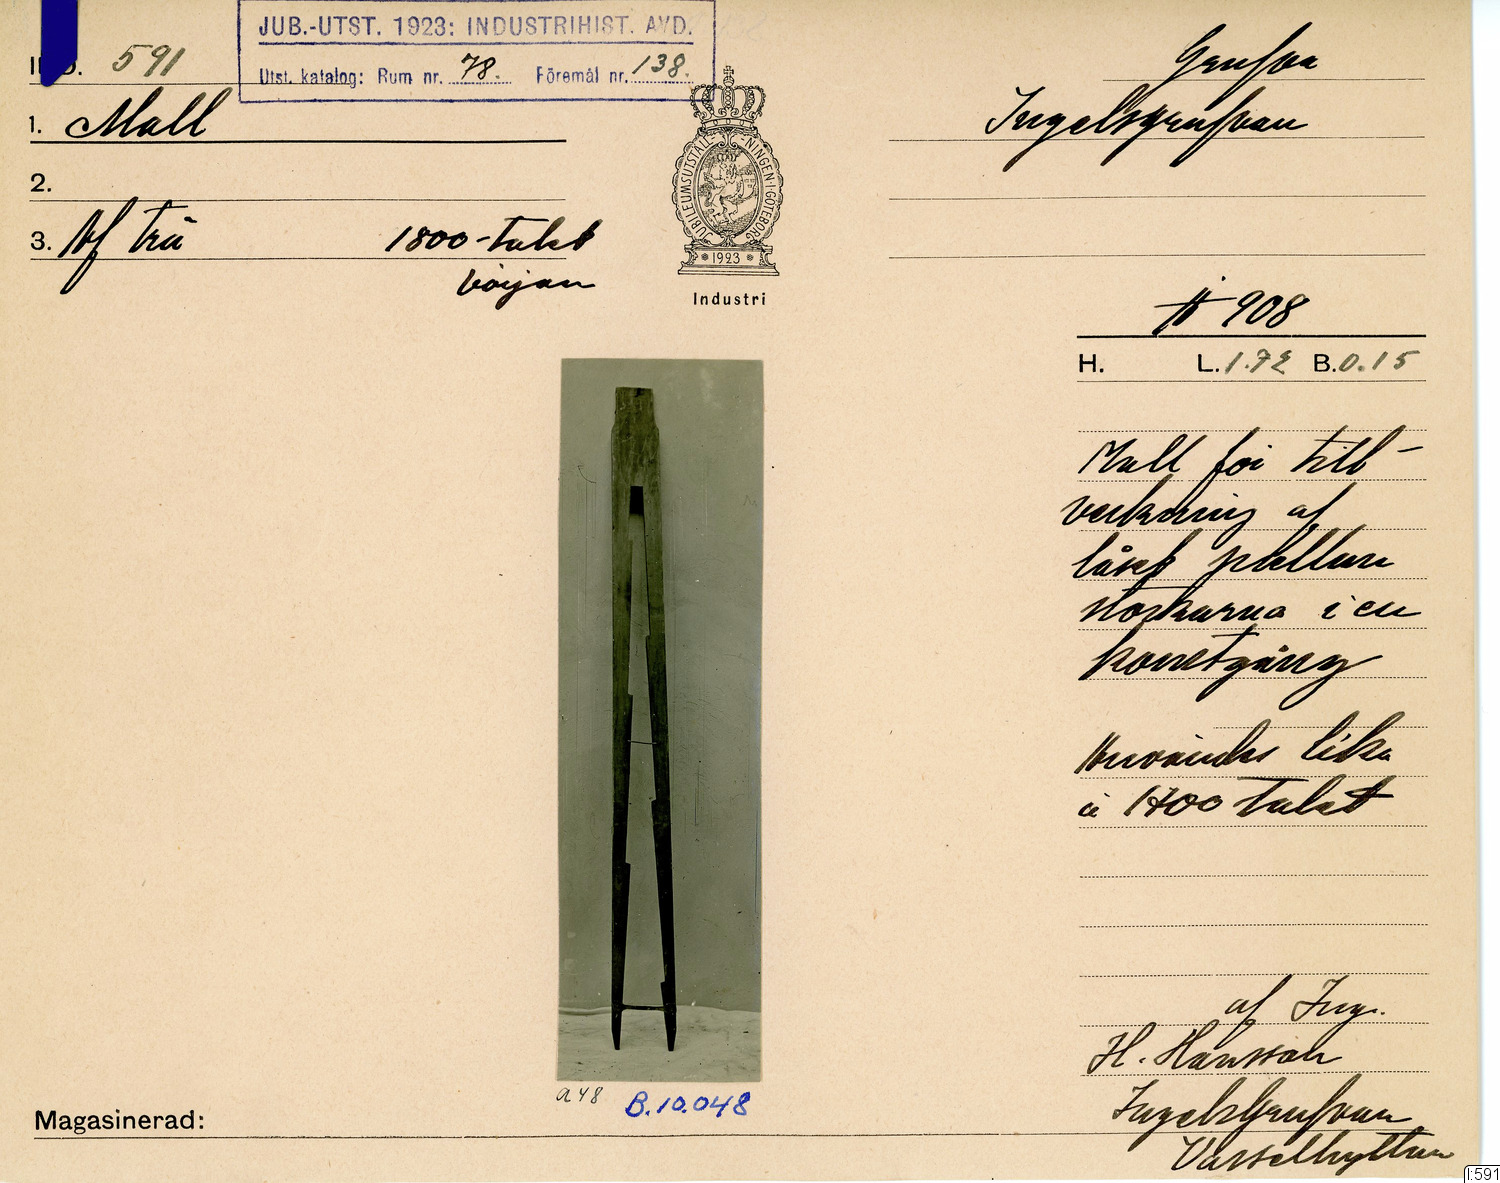 JUB.-UTST. 1923: INDUSTRIHIST. AVD.
Utst. katalog: Rum nr. 78. Föremål nr. 138.
591
1. Mall
2.
3. Af trä 1800-talet
början
JUBILEUMSUTSTÄLL-NINGEN I GÖTEBORG
1923
Industri
Grufva
Ingelsgrufvan
908
H. L. 1.72 B. 0.15
Mall för till-
verkning af
låset
stockarna i en
konstgång
Användes lika
å 1700 talet
af Ing.
H. Hansson
Ingelsgrufvan
a 48 B.10.048
Magasinerad:
I:591